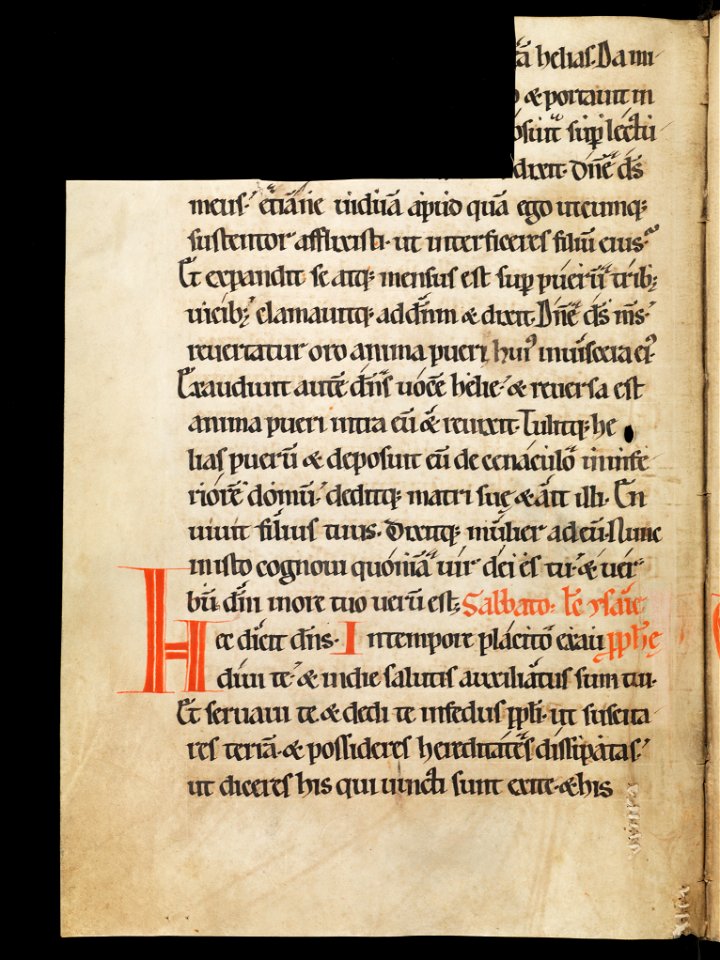 helias. Da mi
& portauit in
sup lectu
dixit. Dne ds
meus. etiane uiduā apud quā ego utcumq;
sustentor afflixisti. ut interficeres filiū eius.
Et expandit se atq; mensus est sup puerū trib;
uicib; clamauitq; ad dnm & dixit. Dne ds ms.
reuertatur oro anima pueri hui' in uiscera ei'.
Exaudiuit autē dns uocē helie. & reuersa est
anima pueri intra eū & reuixit. Tulitq; he
lias puerū & deposuit eū de cenaculo in infe
riorē domū. deditq; matri sue & ait illi. En
uiuit filius tuus. Dixitq; mulier ad eū. Nunc
in isto cognoui quoniā uir dei es tu. & uer
bū dni in ore tuo uerū est; Sabbato. lc ysaie
Hec dicit dns. In tempore placito exau pphe
diui te. & in die salutis auxiliatus sum tui.
Et seruaui te. & dedi te in fedus ppli. ut suscita
res terrā. & possideres hereditates dissipatas.
ut diceres his qui uincti sunt exite. & his